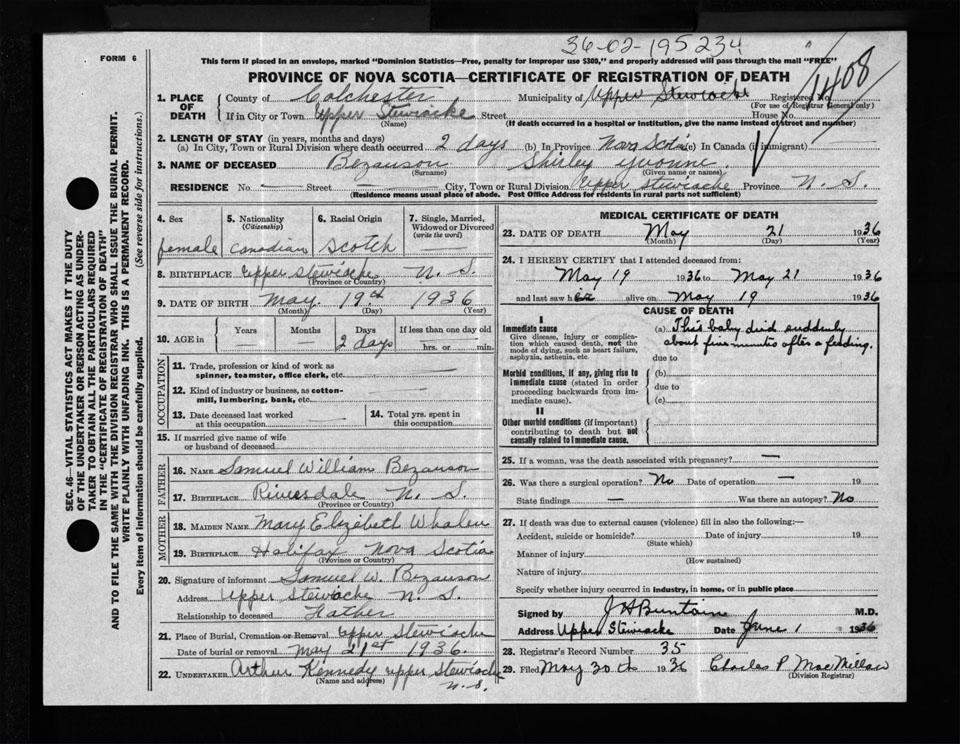 36-02-195234
FORM 6
This form if placed in an envelope, marked "Dominion Statistics—Free, penalty for improper use $300," and properly addressed will pass through the mail "FREE"
PROVINCE OF NOVA SCOTIA—CERTIFICATE OF REGISTRATION OF DEATH
1408
1. PLACE OF DEATH
County of Colchester Municipality of Upper Stewiacke Registered No.
(For use of Registrar General only)
If in City or Town Upper Stewiacke Street House No.
(Name) (If death occurred in a hospital or institution, give the name instead of street and number)
2. LENGTH OF STAY (in years, months and days)
(a) In City, Town or Rural Division where death occurred 2 days (b) In Province Nova Scotia (c) In Canada (if immigrant) —
3. NAME OF DECEASED Bezanson Shirley Yvonne
(Surname) (Given name or names)
RESIDENCE No. — Street — City, Town or Rural Division Upper Stewiacke Province N. S.
(Residence means usual place of abode. Post Office Address for residents in rural parts not sufficient)
4. Sex
female
5. Nationality
(Citizenship)
Canadian
6. Racial Origin
Scotch
7. Single, Married, Widowed or Divorced
(write the word)
—
8. BIRTHPLACE Upper Stewiacke N. S.
(Province or Country)
9. DATE OF BIRTH May 19th 1936
(Month) (Day) (Year)
10. AGE in
Years Months Days If less than one day old
— — 2 days hrs. or min.
OCCUPATION
11. Trade, profession or kind of work as
spinner, teamster, office clerk, etc. —
12. Kind of industry or business, as cotton-
mill, lumbering, bank, etc. —
13. Date deceased last worked
at this occupation —
14. Total yrs. spent in
this occupation —
15. If married give name of wife
or husband of deceased
FATHER
16. NAME Samuel William Bezanson
17. BIRTHPLACE Riversdale N. S.
MOTHER
18. MAIDEN NAME Mary Elizabeth Whalen
19. BIRTHPLACE Halifax Nova Scotia
(Province or Country)
20. Signature of informant Samuel W. Bezanson
Address Upper Stewiacke N. S.
Relationship to deceased Father
21. Place of Burial, Cremation or Removal Upper Stewiacke
Date of burial or removal May 21st 1936.
22. UNDERTAKER Arthur Kennedy Upper Stewiacke
(Name and address) N. S.
MEDICAL CERTIFICATE OF DEATH
23. DATE OF DEATH May 21 1936
(Month) (Day) (Year)
24. I HEREBY CERTIFY that I attended deceased from:
May 19 1936 to May 21 1936
and last saw her alive on May 19 1936
CAUSE OF DEATH
I
Immediate cause
Give disease, injury or complica-
tion which caused death, not the
mode of dying, such as heart failure,
asphyxia, asthenia, etc.
(a) This baby died suddenly
about five minutes after a feeding.
due to
Morbid conditions, if any, giving rise to
immediate cause (stated in order
proceeding backwards from im-
mediate cause).
(b)
due to
(c)
II
Other morbid conditions (if important)
contributing to death but not
causally related to immediate cause.
25. If a woman, was the death associated with pregnancy? —
26. Was there a surgical operation? No Date of operation — 19
State findings — Was there an autopsy? No
27. If death was due to external causes (violence) fill in also the following:—
Accident, suicide or homicide? Date of injury 19
(State which)
Manner of injury
(How sustained)
Nature of injury
Specify whether injury occurred in industry, in home, or in public place
Signed by J H Buntain M.D.
Address Upper Stewiacke Date June 1 1936
28. Registrar's Record Number 35
29. Filed May 30th 1936 Charles P MacMillan
(Division Registrar)
SEC. 46—VITAL STATISTICS ACT MAKES IT THE DUTY
OF THE UNDERTAKER OR PERSON ACTING AS UNDER-
TAKER TO OBTAIN ALL THE PARTICULARS REQUIRED
IN THE "CERTIFICATE OF REGISTRATION OF DEATH"
AND TO FILE THE SAME WITH THE DIVISION REGISTRAR WHO SHALL ISSUE THE BURIAL PERMIT.
WRITE PLAINLY WITH UNFADING INK. THIS IS A PERMANENT RECORD.
Every item of information should be carefully supplied. (See reverse side for instructions.)